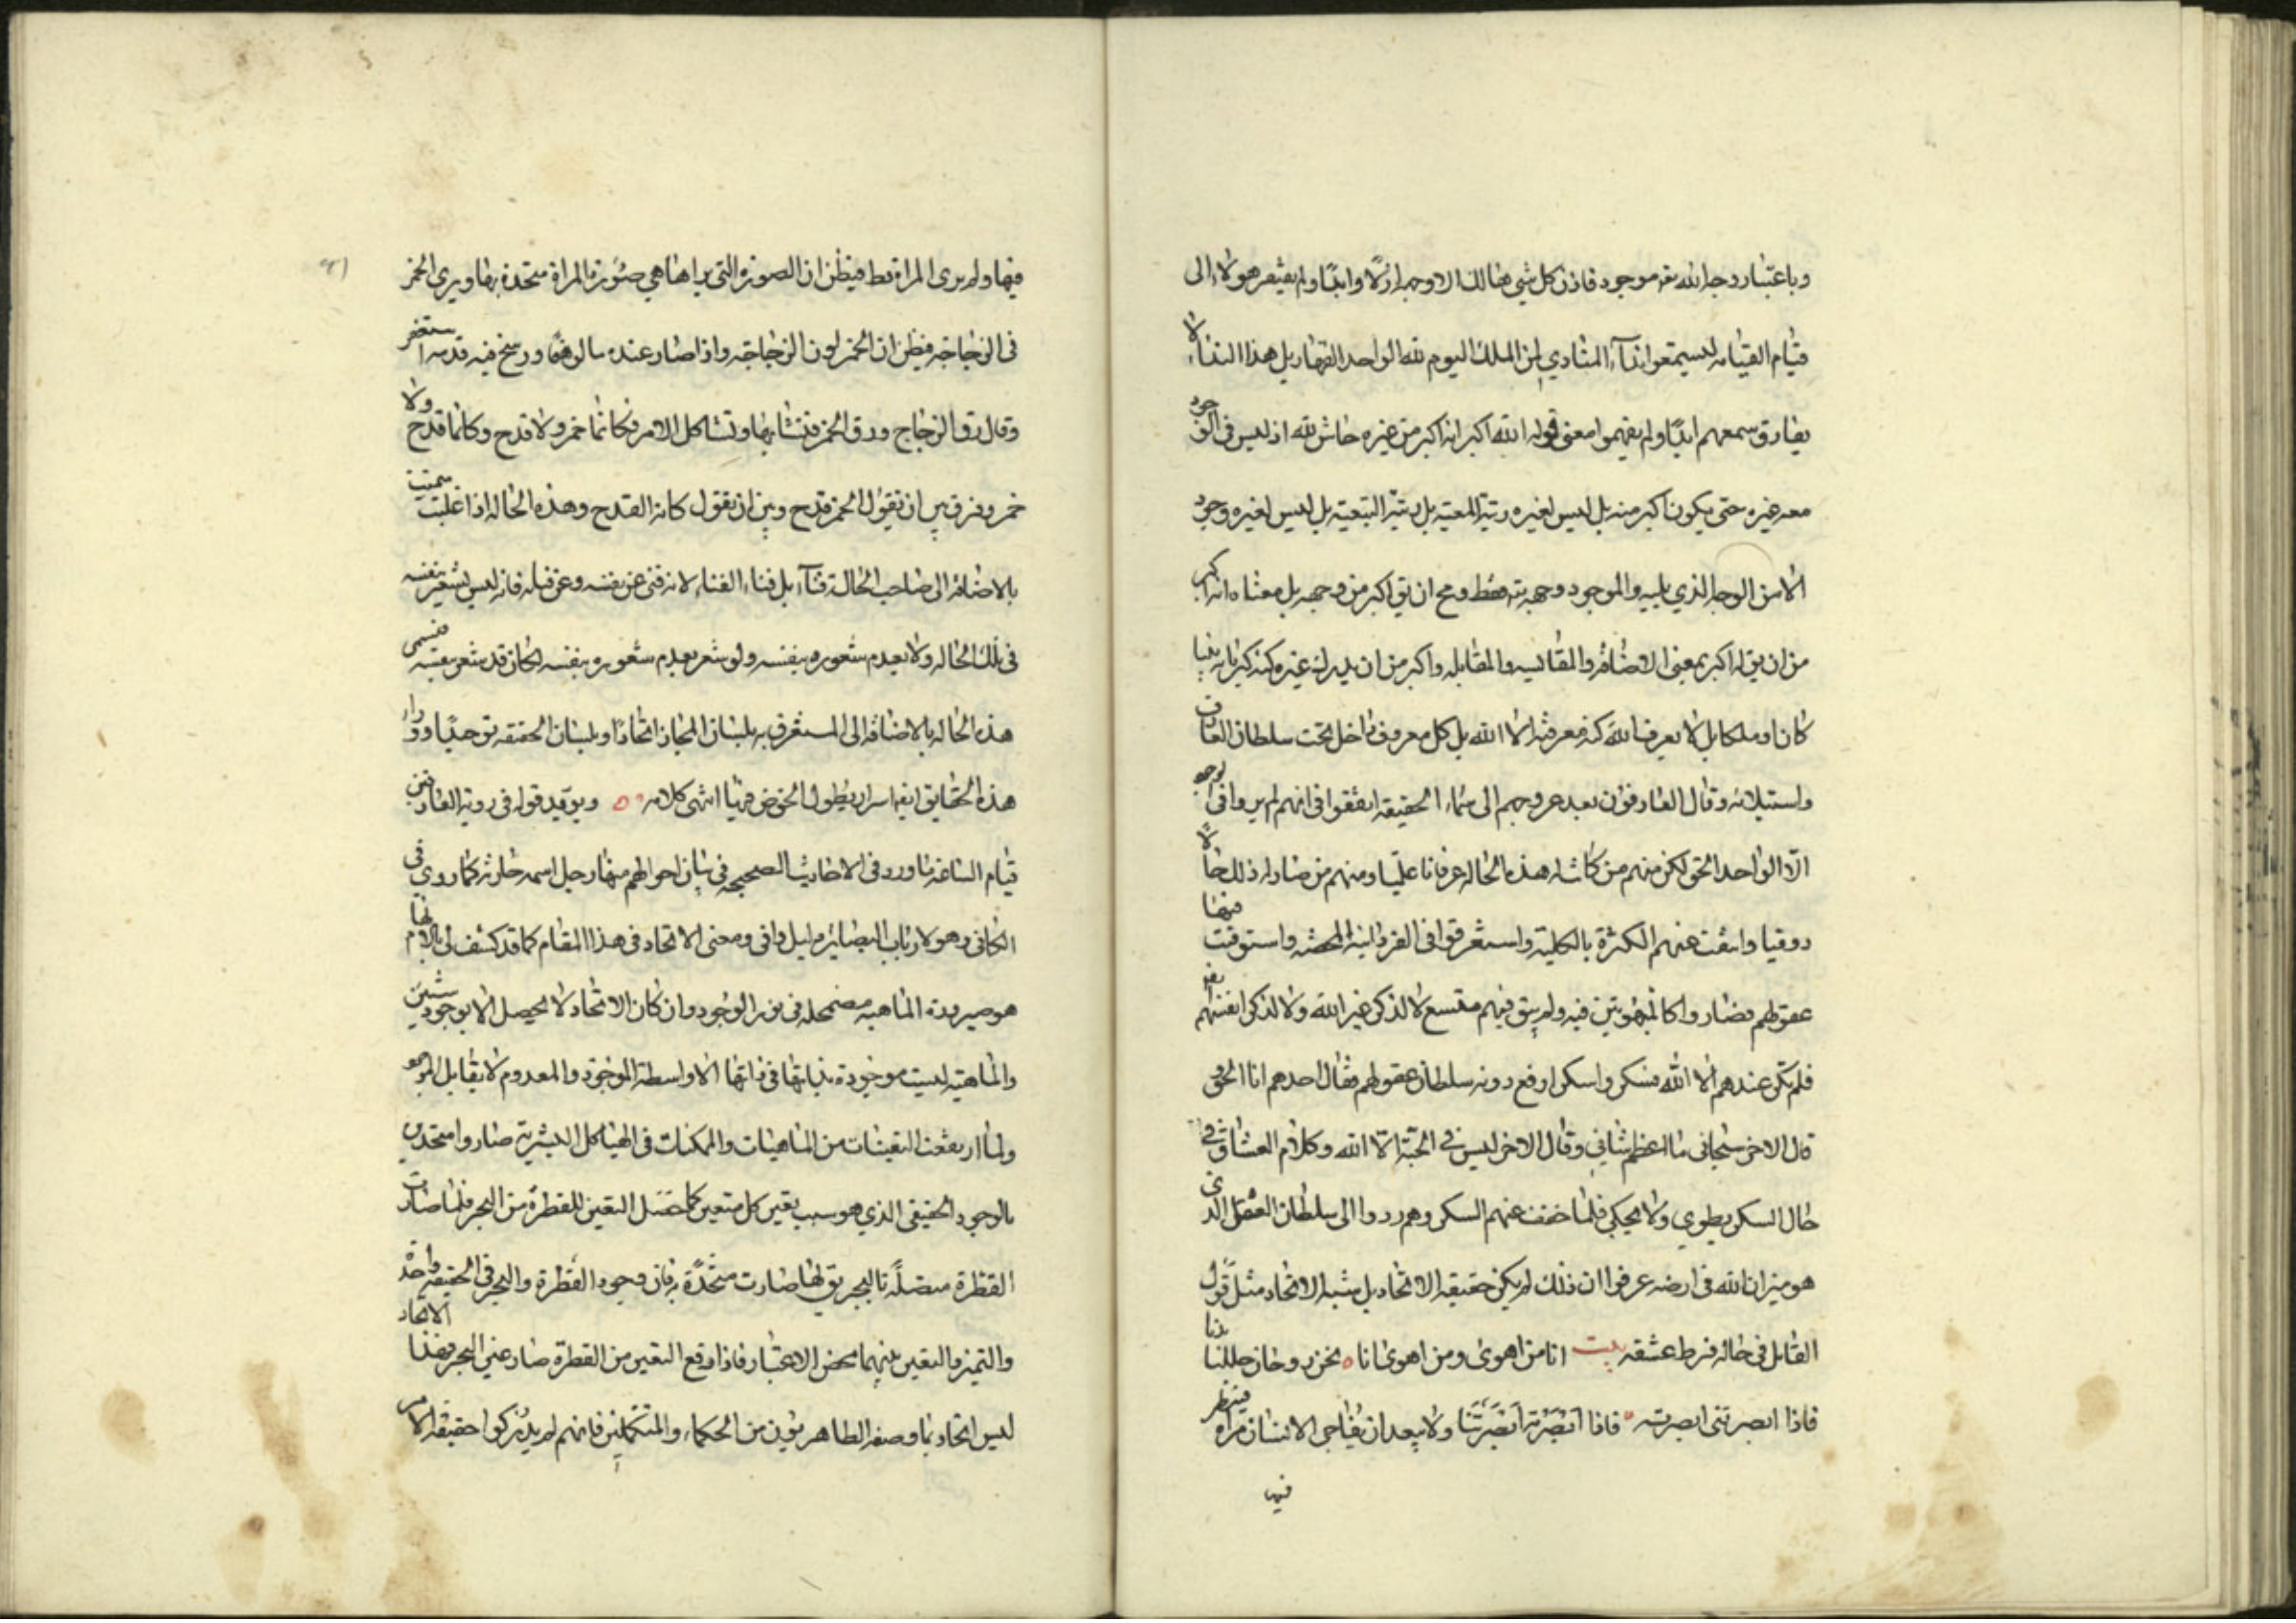 وباعتبار وجه الله تعه موجود فاذن كل شي هالك الا وجهه ازلا وابدا ولم يفتقر هولاء الى
قيام القيامه ليسمعوا نداء المنادي لمن الملك اليوم لله الواحد القهار بل هذا النداء لا
يفارق سمعهم ابدا ولم يفهموا معنى قوله الله اكبر انه اكبر من غيره حاش لله اذ ليس في الوجود
معه غيره حتى يكون اكبر منه بل ليس لغيره رتبة المعيه بل رتبة التبعيه بل ليس لغيره وجود
الا من الوجه الذي يليه والموجود وجهه فقط ومح ان يق اكبر من وجهه بل معناه انه اكبر
من ان يق له اكبر بمعنى الاضافه والمقايسه والمقابله واكبر من ان يدرك غيره كنه كبريائه نبيا
كان او ملكا بل لا يعرف الله كنه معرفته الا الله بل كل معروف داخل تحت سلطان العارف
واستيلائه وقال العارفون بعد عروجهم الى سماء الحقيقه اتفقوا في انهم لم يروا في الوجود
الا الواحد الحق لكن منهم من كان له هذه الحاله عرفانا علميا ومنهم من صار له ذلك حالا
ذوقيا وانتفت عنهم الكثرة بالكلية واستغرقوا في الفردانيه المحضه واستوفت فيها
عقولهم فصاروا كالمبهوتين فيه ولم يبق فيهم متسع لا لذكر غير الله ولا لذكر انفسهم
فلم يكن عندهم الا الله فسكروا سكرا رفع دونه سلطان عقولهم فقال احدهم انا الحق و
قال الاخر سبحاني ما اعظم شاني وقال الاخر ليس في الجبة الا الله وكلام العشاق في
حال السكر يطوي ولا يحكي فلما خفف عنهم السكر وهم ردوا الى سلطان العقل الذي
هو ميزان الله في ارضه عرفوا ان ذلك لم يكن حقيقه الاتحاد بل شبه الاتحاد مثل قول
القايل في حاله فرط عشقه بيت انا من اهوى ومن اهوى انا ٥ نحن روحان حللنا بدنا
فاذا ابصرتني ابصرته ٥ فاذا ابصرته ابصرتنا ولا يبعد ان يفاجي الانسان مراه فينظر
فيها
فيها ولم يرى المراة قط فيظن ان الصورة التي يراها هي صورة المراة متحدة بها ويرى الخمر
في الزجاجه فيظن ان الخمر لون الزجاجه واذا صار عنده مالوفا ورسخ فيه قدمه استغفر
وقال رق الزجاج ورق الخمر فتشابها وتشاكل الامر فكانما خمر ولا قدح وكانما قدح ولا
خمر وفرق بين ان تقول الخمر قدح وبين ان تقول كانه القدح وهذه الحاله اذا غلبت سميت
بالاضافه الى صاحب الحالة فناء بل فناء الفناء لانه فنى عن نفسه وعن فنائه فانه ليس يشعر بنفسه
في تلك الحاله ولا بعدم شعوره بنفسه ولو شعر بعدم شعوره بنفسه لكان قد شعر بنفسه فتسمى
هذه الحاله بالاضافه الى المستغرق به بلسان المجاز اتحادا وبلسان الحقيقه توحيدا ووراء
هذه الحقايق ايضه اسرار يطول الخوض فيها انتهى كلامه ٥ ويويد قوله في روية العارفين
قيام الساعه ما ورد في الاحاديث الصحيحه في بيان احوالهم منها رجل اسمه حارثه كما روي في
الكافي وهو لارباب البصائر دليل وافي ومعنى الاتحاد في هذا المقام كما قد كشف لي بالالهام
هو صيرورة الماهيه مضمحله في نور الوجود وان كان الاتحاد لا يحصل الا بوجود شيئين
والماهية ليست موجودة بذاتها في ذاتها الا واسطة الموجود والمعدوم لا يقابل الموجود
ولما ارتفعت التعينات من الماهيات والممكنات في الهياكل البشرية صاروا متحدين
بالوجود الحقيقي الذي هو سبب تعين كل متعين كما حصل التعين للقطرة من البحر فلما صارت
القطرة متصلة بالبحر يق لها صارت متحدة به فان وجود القطرة والبحر في الحقيقه واحد
والتميز والتعين بينهما محض الاعتبار فاذا وقع التعين من القطرة صار عين البحر فهذا الاتحاد
ليس اتحاد بما وصفه الظاهريون من الحكماء والمتكلمين فانهم لم يدركوا حقيقة الامر